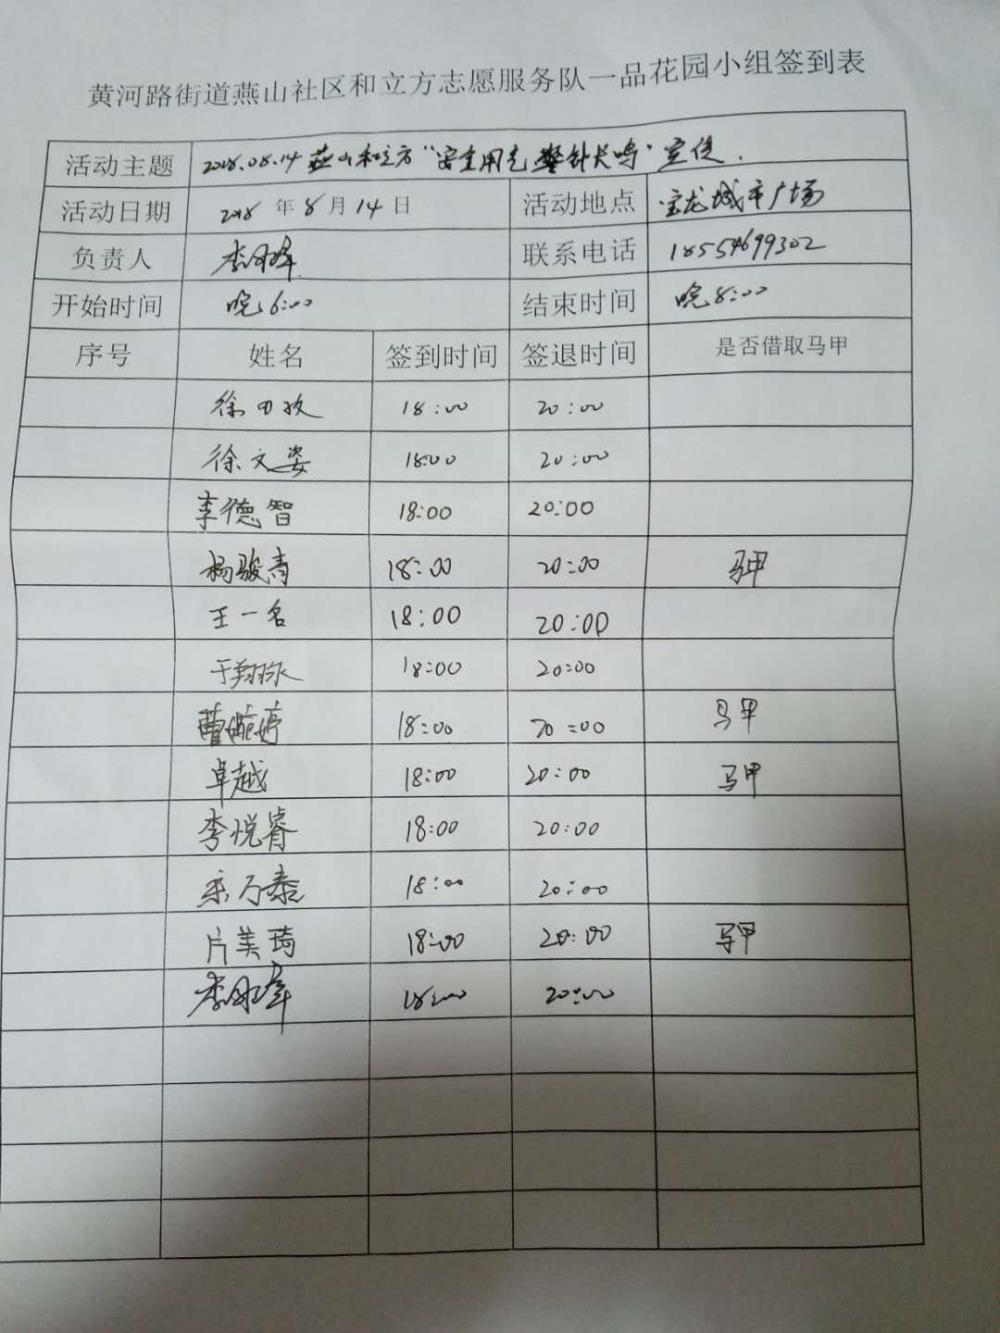 黄河路街道燕山社区和立方志愿服务队一品花园小组签到表
活动主题 2018.08.14 燕山和立方“安全用气 警钟长鸣”宣传.
活动日期 2018 年 8 月 14 日 活动地点 宝龙城市广场
负责人 联系电话 18554699302
开始时间 晚6:00 结束时间 晚8:00
序号 姓名 签到时间 签退时间 是否借取马甲
徐 18:00 20:00
徐文姿 18:00 20:00
李德智 18:00 20:00
杨骏青 18:00 20:00 马甲
王一名 18:00 20:00
于翔泳 18:00 20:00
曹婉婷 18:00 20:00 马甲
卓越 18:00 20:00 马甲
李悦睿 18:00 20:00
万泰 18:00 20:00
片美琦 18:00 20:00 马甲
李 18:00 20:00